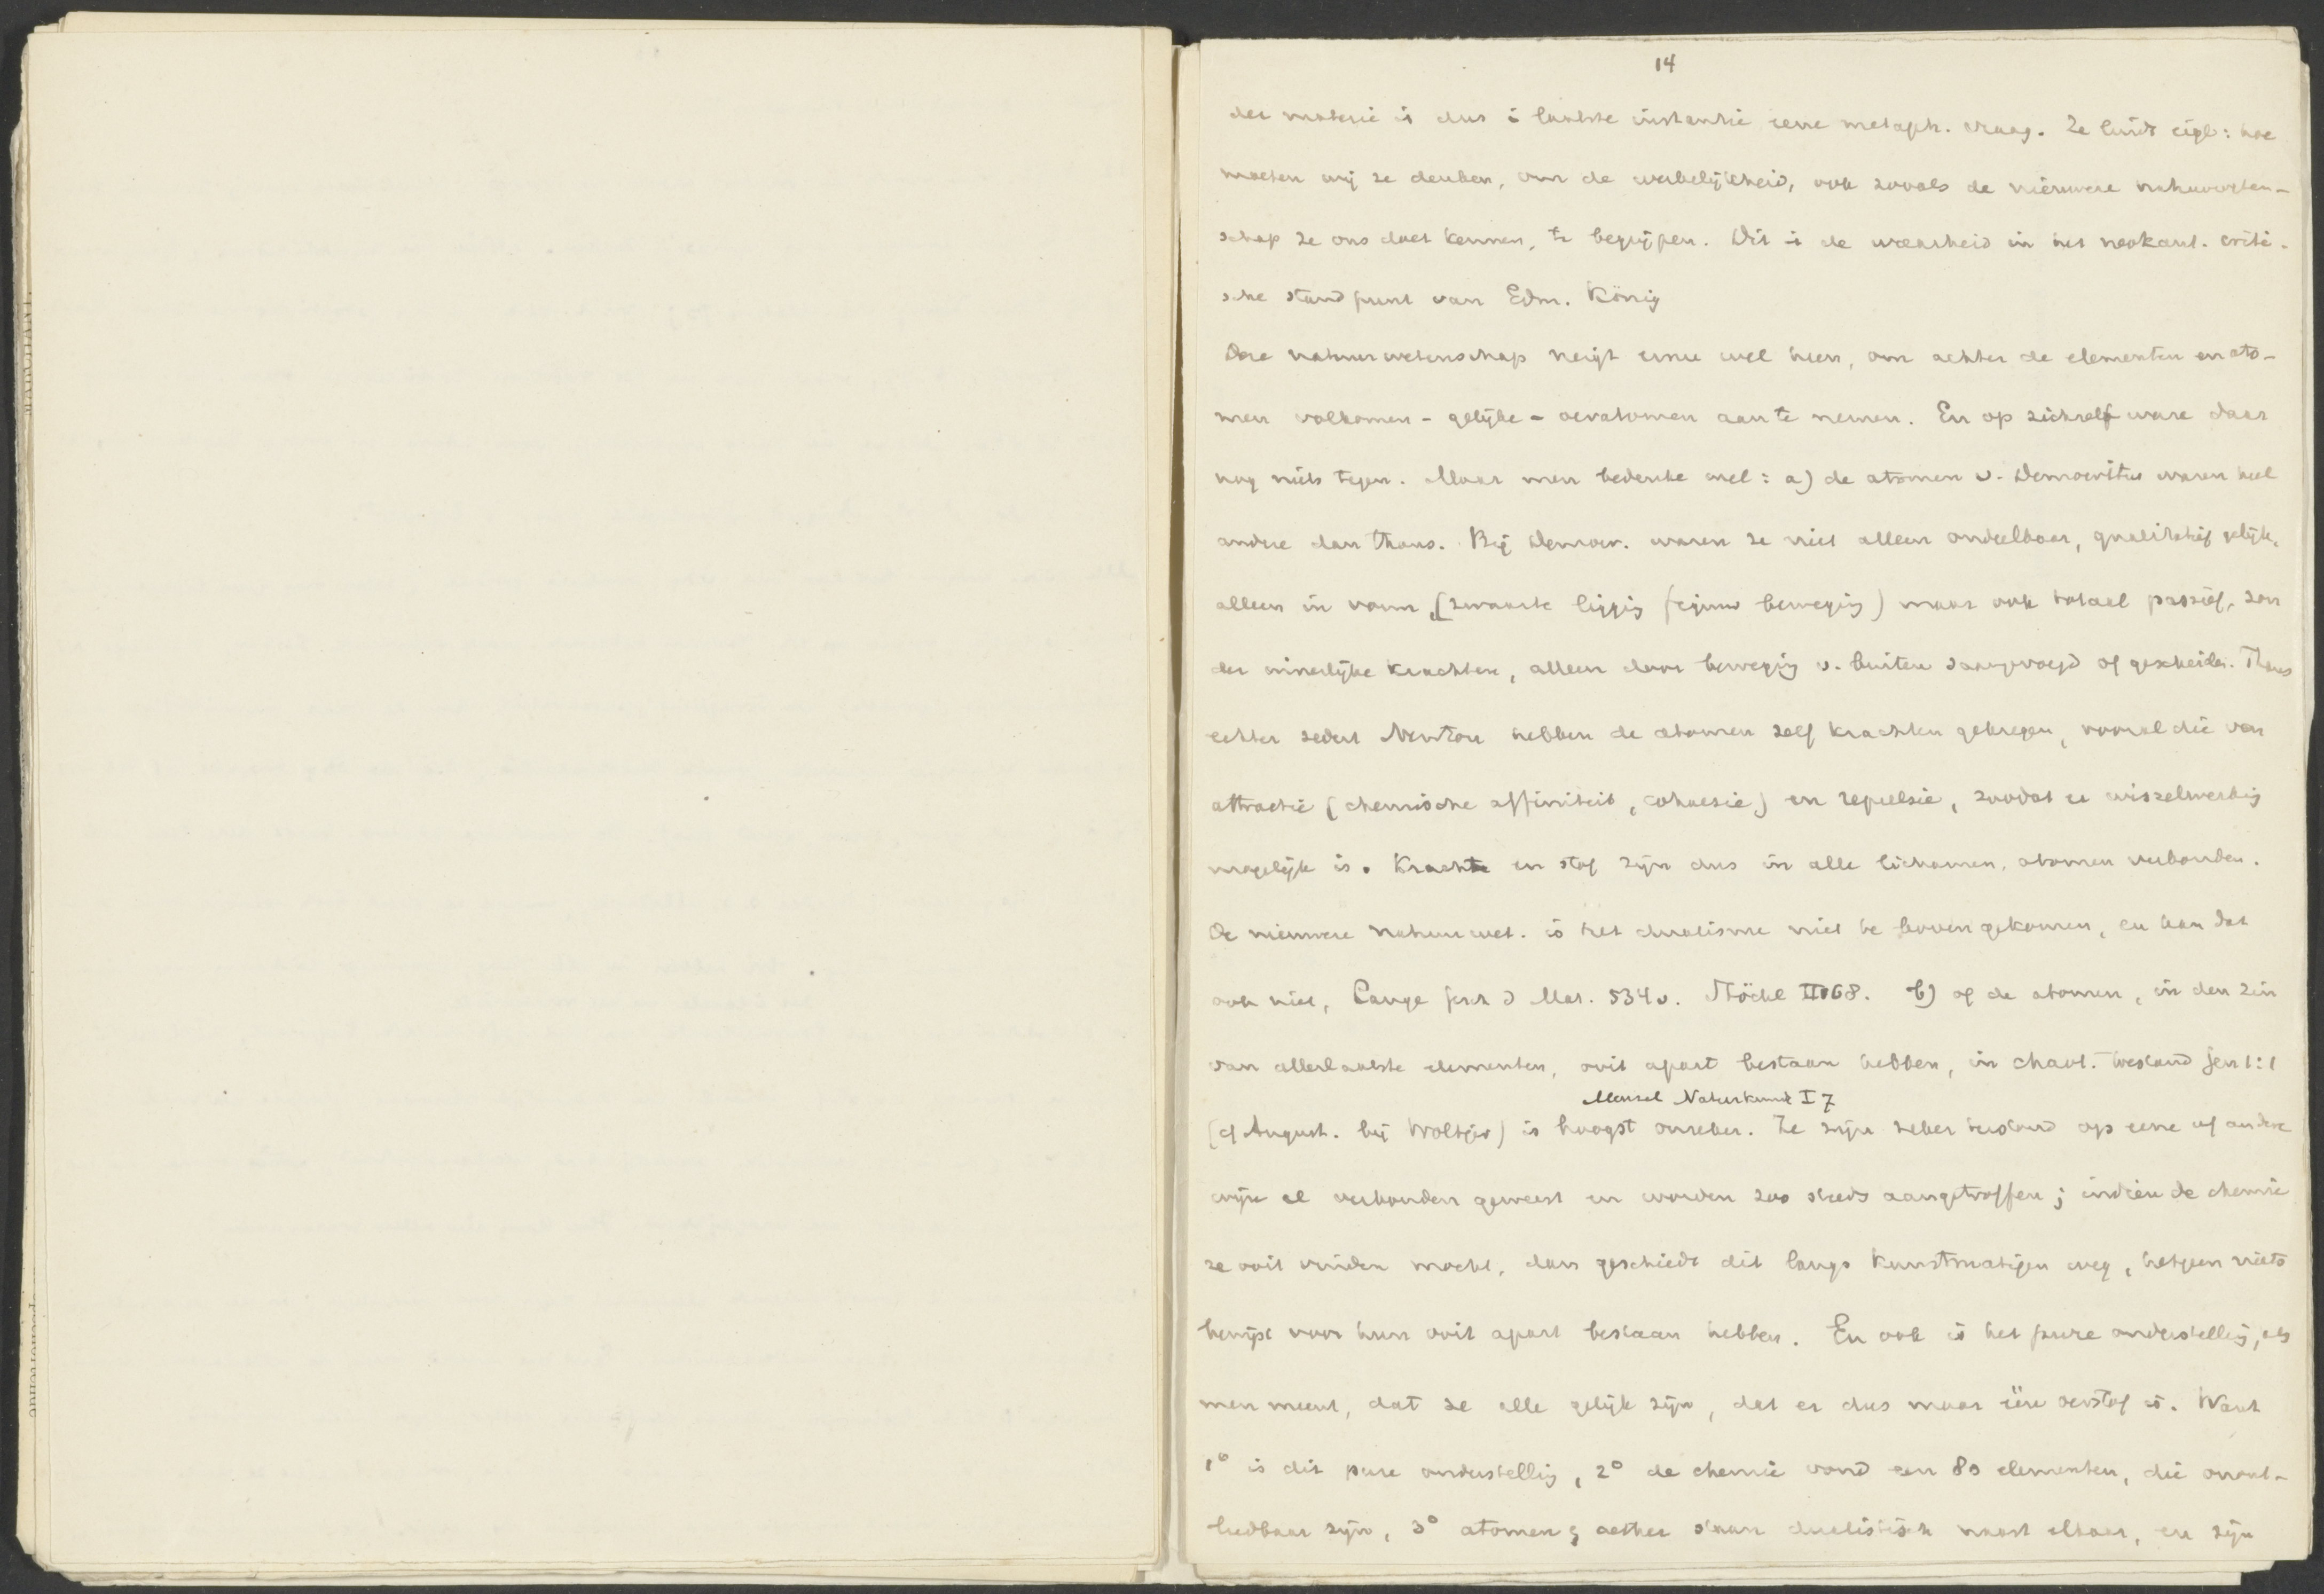 14
der materie is dus i laatste instantie eene metaph. vraag. Ze luidt eigl: hoe
moeten wij ze denken, om de werkelijkheid, ook zooals de nieuwere natuurweten-
schap ze ons doet kennen, te begrijpen. Dit is de waarheid in het neokant. criti-
sche standpunt van Edm. König
Deze natuurwetenschap neigt er nu wel heen, om achter de elementen en ato-
men volkomen - gelijke - oeratomen aan te nemen. En op zichzelf ware daar
nog niets tegen. Maar men bedenke wel: a) de atomen v. Democritus waren heel
andere dan thans. Bij Democr. waren ze niet alleen ondeelbaar, qualitatief gelijk,
alleen in vorm, (zwaarte ligging beweging) maar ook totaal passief, zon
der innerlijke krachten, alleen door beweging v. buiten saamgevoegd of gescheiden. Thans
echter sedert Newton hebben de atomen zelf krachten gekregen, vooral die van
attractie (chemische affiniteit, cohaesie) en repulsie, zoodat er wisselwerking
mogelijk is. Kracht en stof zijn dus in alle lichamen, atomen verbonden.
De nieuwere natuurwet. is het dualisme niet te boven gekomen, en kan dat
ook niet, Lange Gesch d Mat. 534v. Stöckl II 68. b) of de atomen, in den zin
van allerlaatste elementen, ooit apart bestaan hebben, in chaot. toestand Gen 1:1
Mensch Naturkunde I 7
(cf August. bij Woltjer) is hoogst onzeker. Ze zijn zeker terstond op eene of andere
wijze al verbonden geweest en worden zoo steeds aangetroffen; indien de chemie
ze ooit vinden mocht, dan geschiedt dit langs kunstmatigen weg, hetgeen niets
bewijst voor hun ooit apart bestaan hebben. En ook is het pure onderstelling, als
men meent, dat ze alle gelijk zijn, dat er dus maar ééne oerstof is. Want
1° is dit pure onderstelling, 2° de chemie vond een 80 elementen, die onont-
leedbaar zijn, 3° atomen & aether staan dualistisch naast elkaar, en zijn